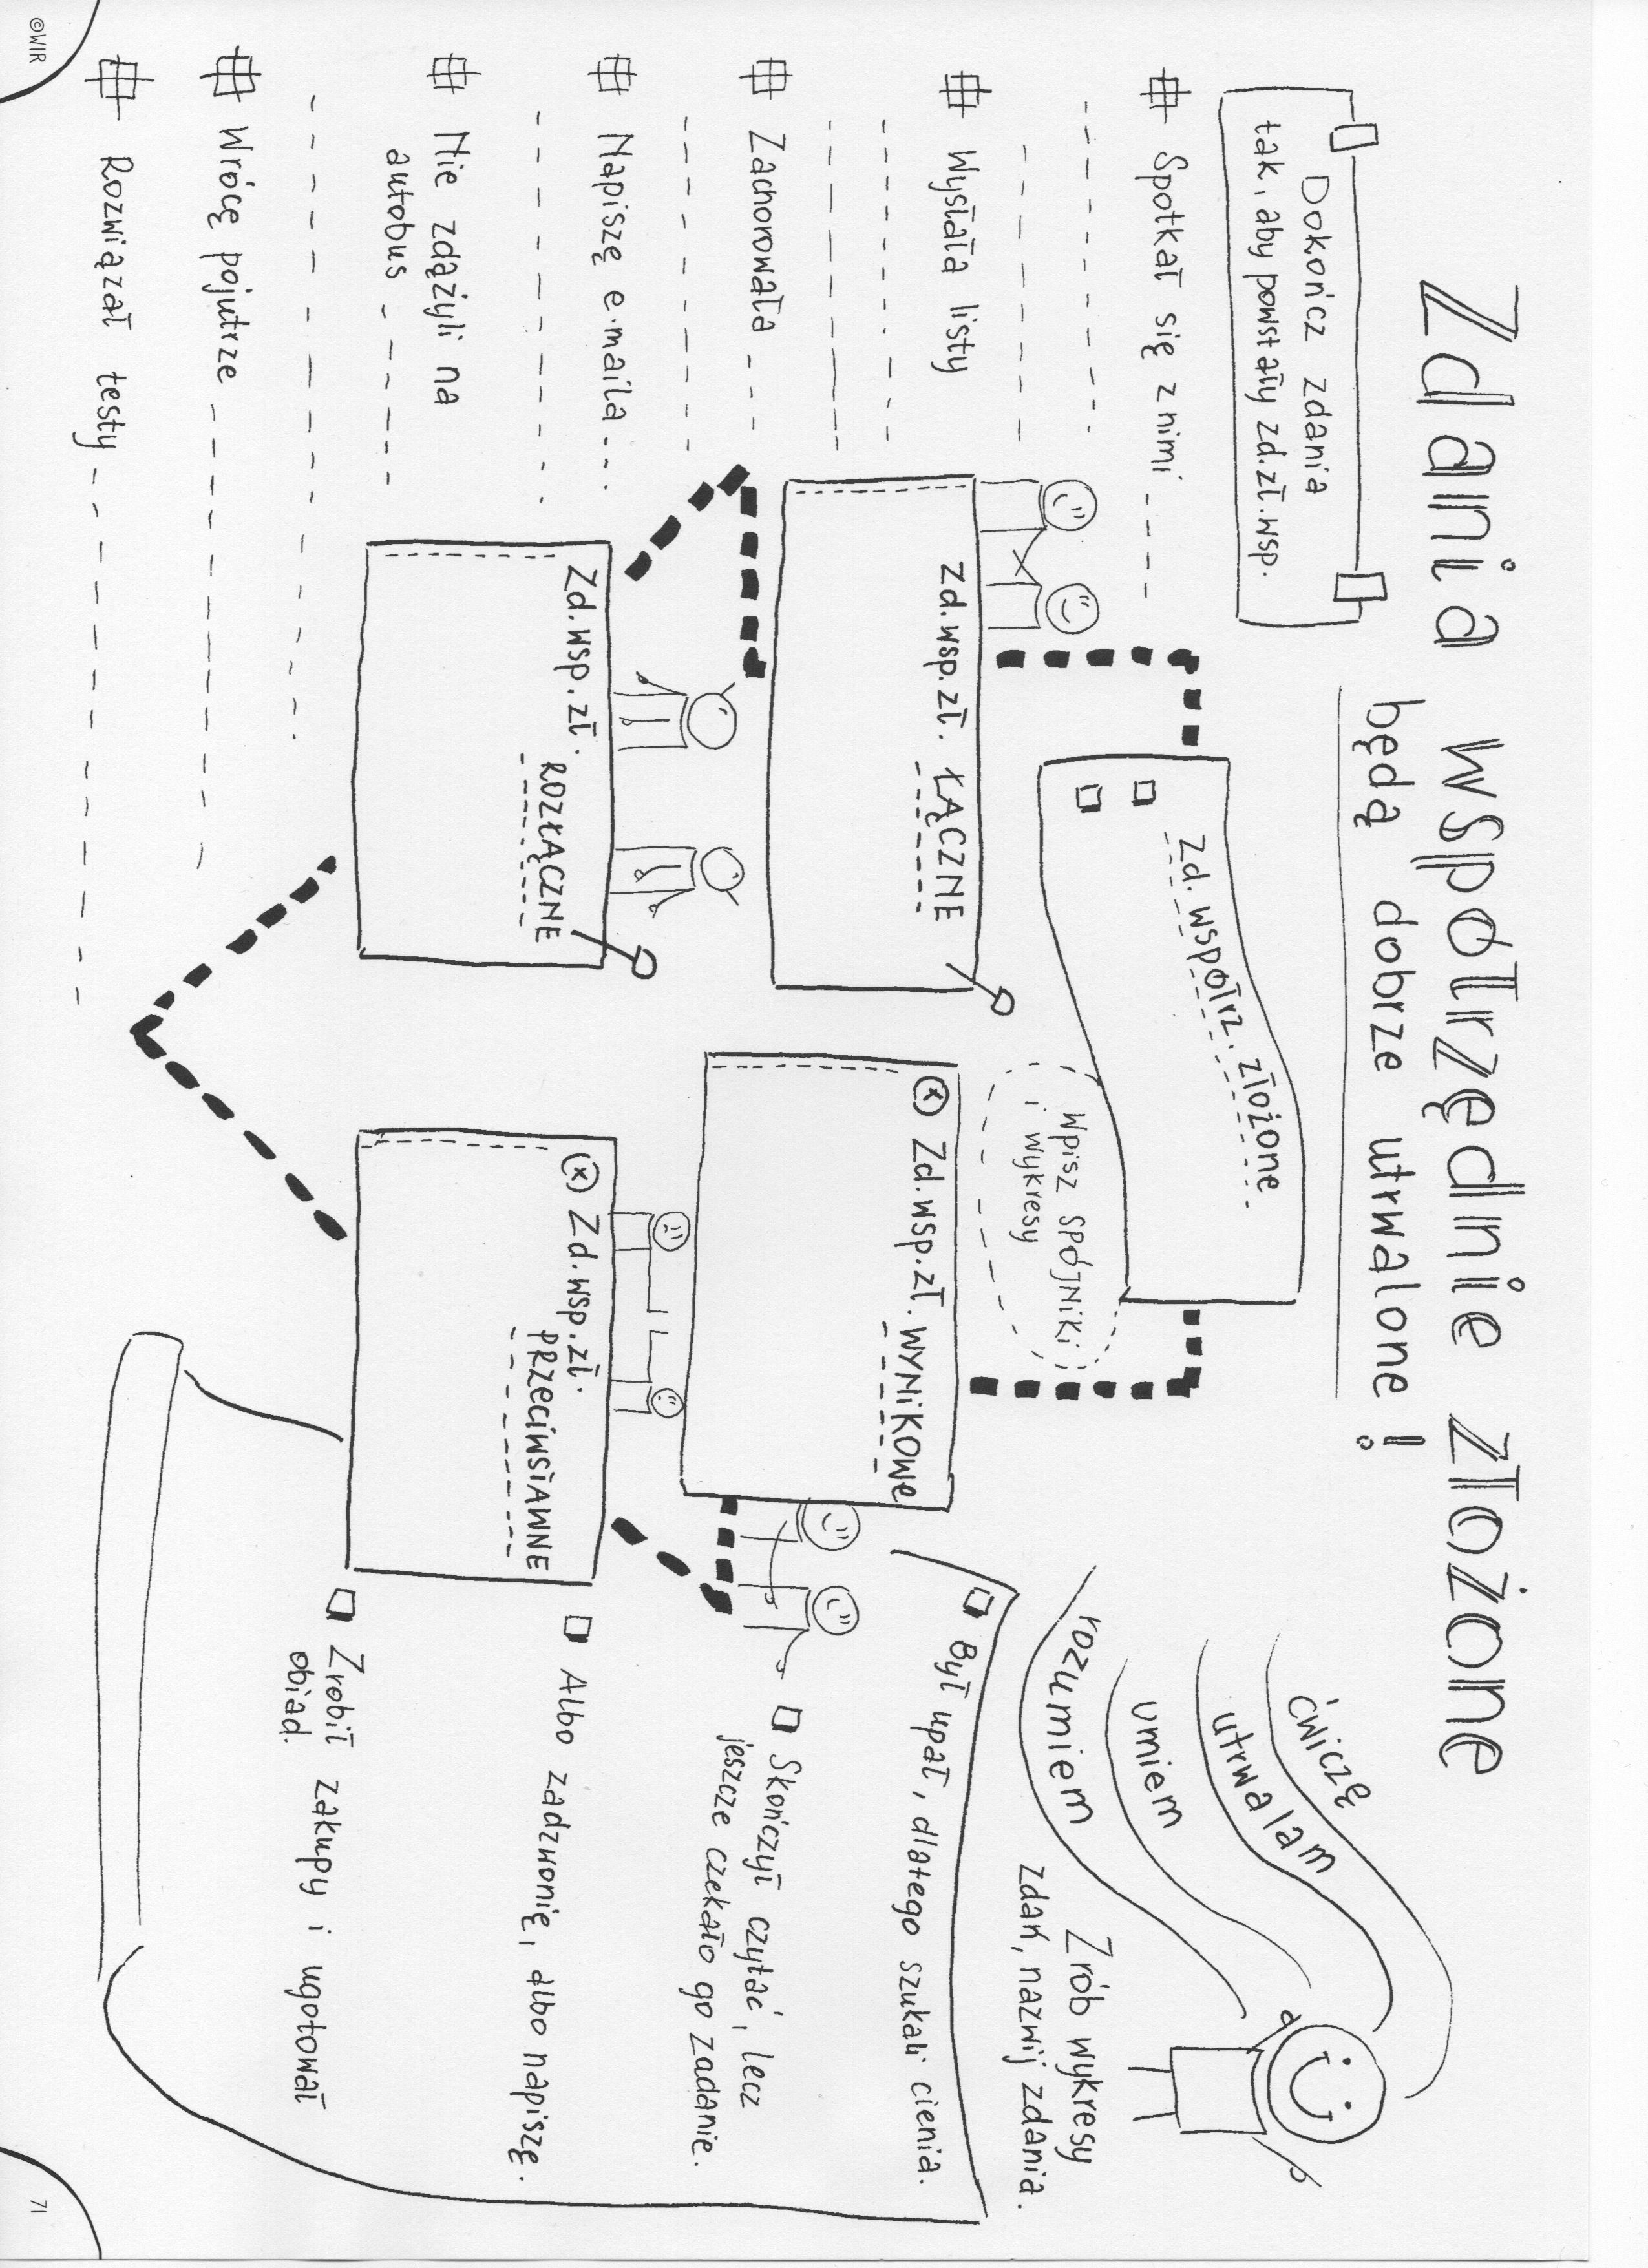 Zdania współrzędnie złożone
będą dobrze utrwalone!
Dokończ zdania
tak, aby powstały zd.zł.wsp.
# Spotkał się z nimi
# Wysłała listy
# Zachorowała
# Napiszę e-maila
# Nie zdążyli na
autobus
# Wrócę pojutrze
# Rozwiązał testy
zd. współrz. złożone
Wpisz SPÓJNIKI
i wykresy
Zd.wsp.zł. ŁĄCZNE
Zd.wsp.zł.
ROZŁĄCZNE
Zd.wsp.zł. WYNIKOWE
Zd.wsp.zł.
PRZECIWSTAWNE
ćwiczę
utrwalam
umiem
rozumiem
Zrób wykresy
zdań, nazwij zdania.
Był upał, dlatego szukali cienia.
Skończył czytać, lecz
jeszcze czekało go zadanie.
Albo zadzwonię, albo napiszę.
Zrobił zakupy i ugotował
obiad.
©WIR
71